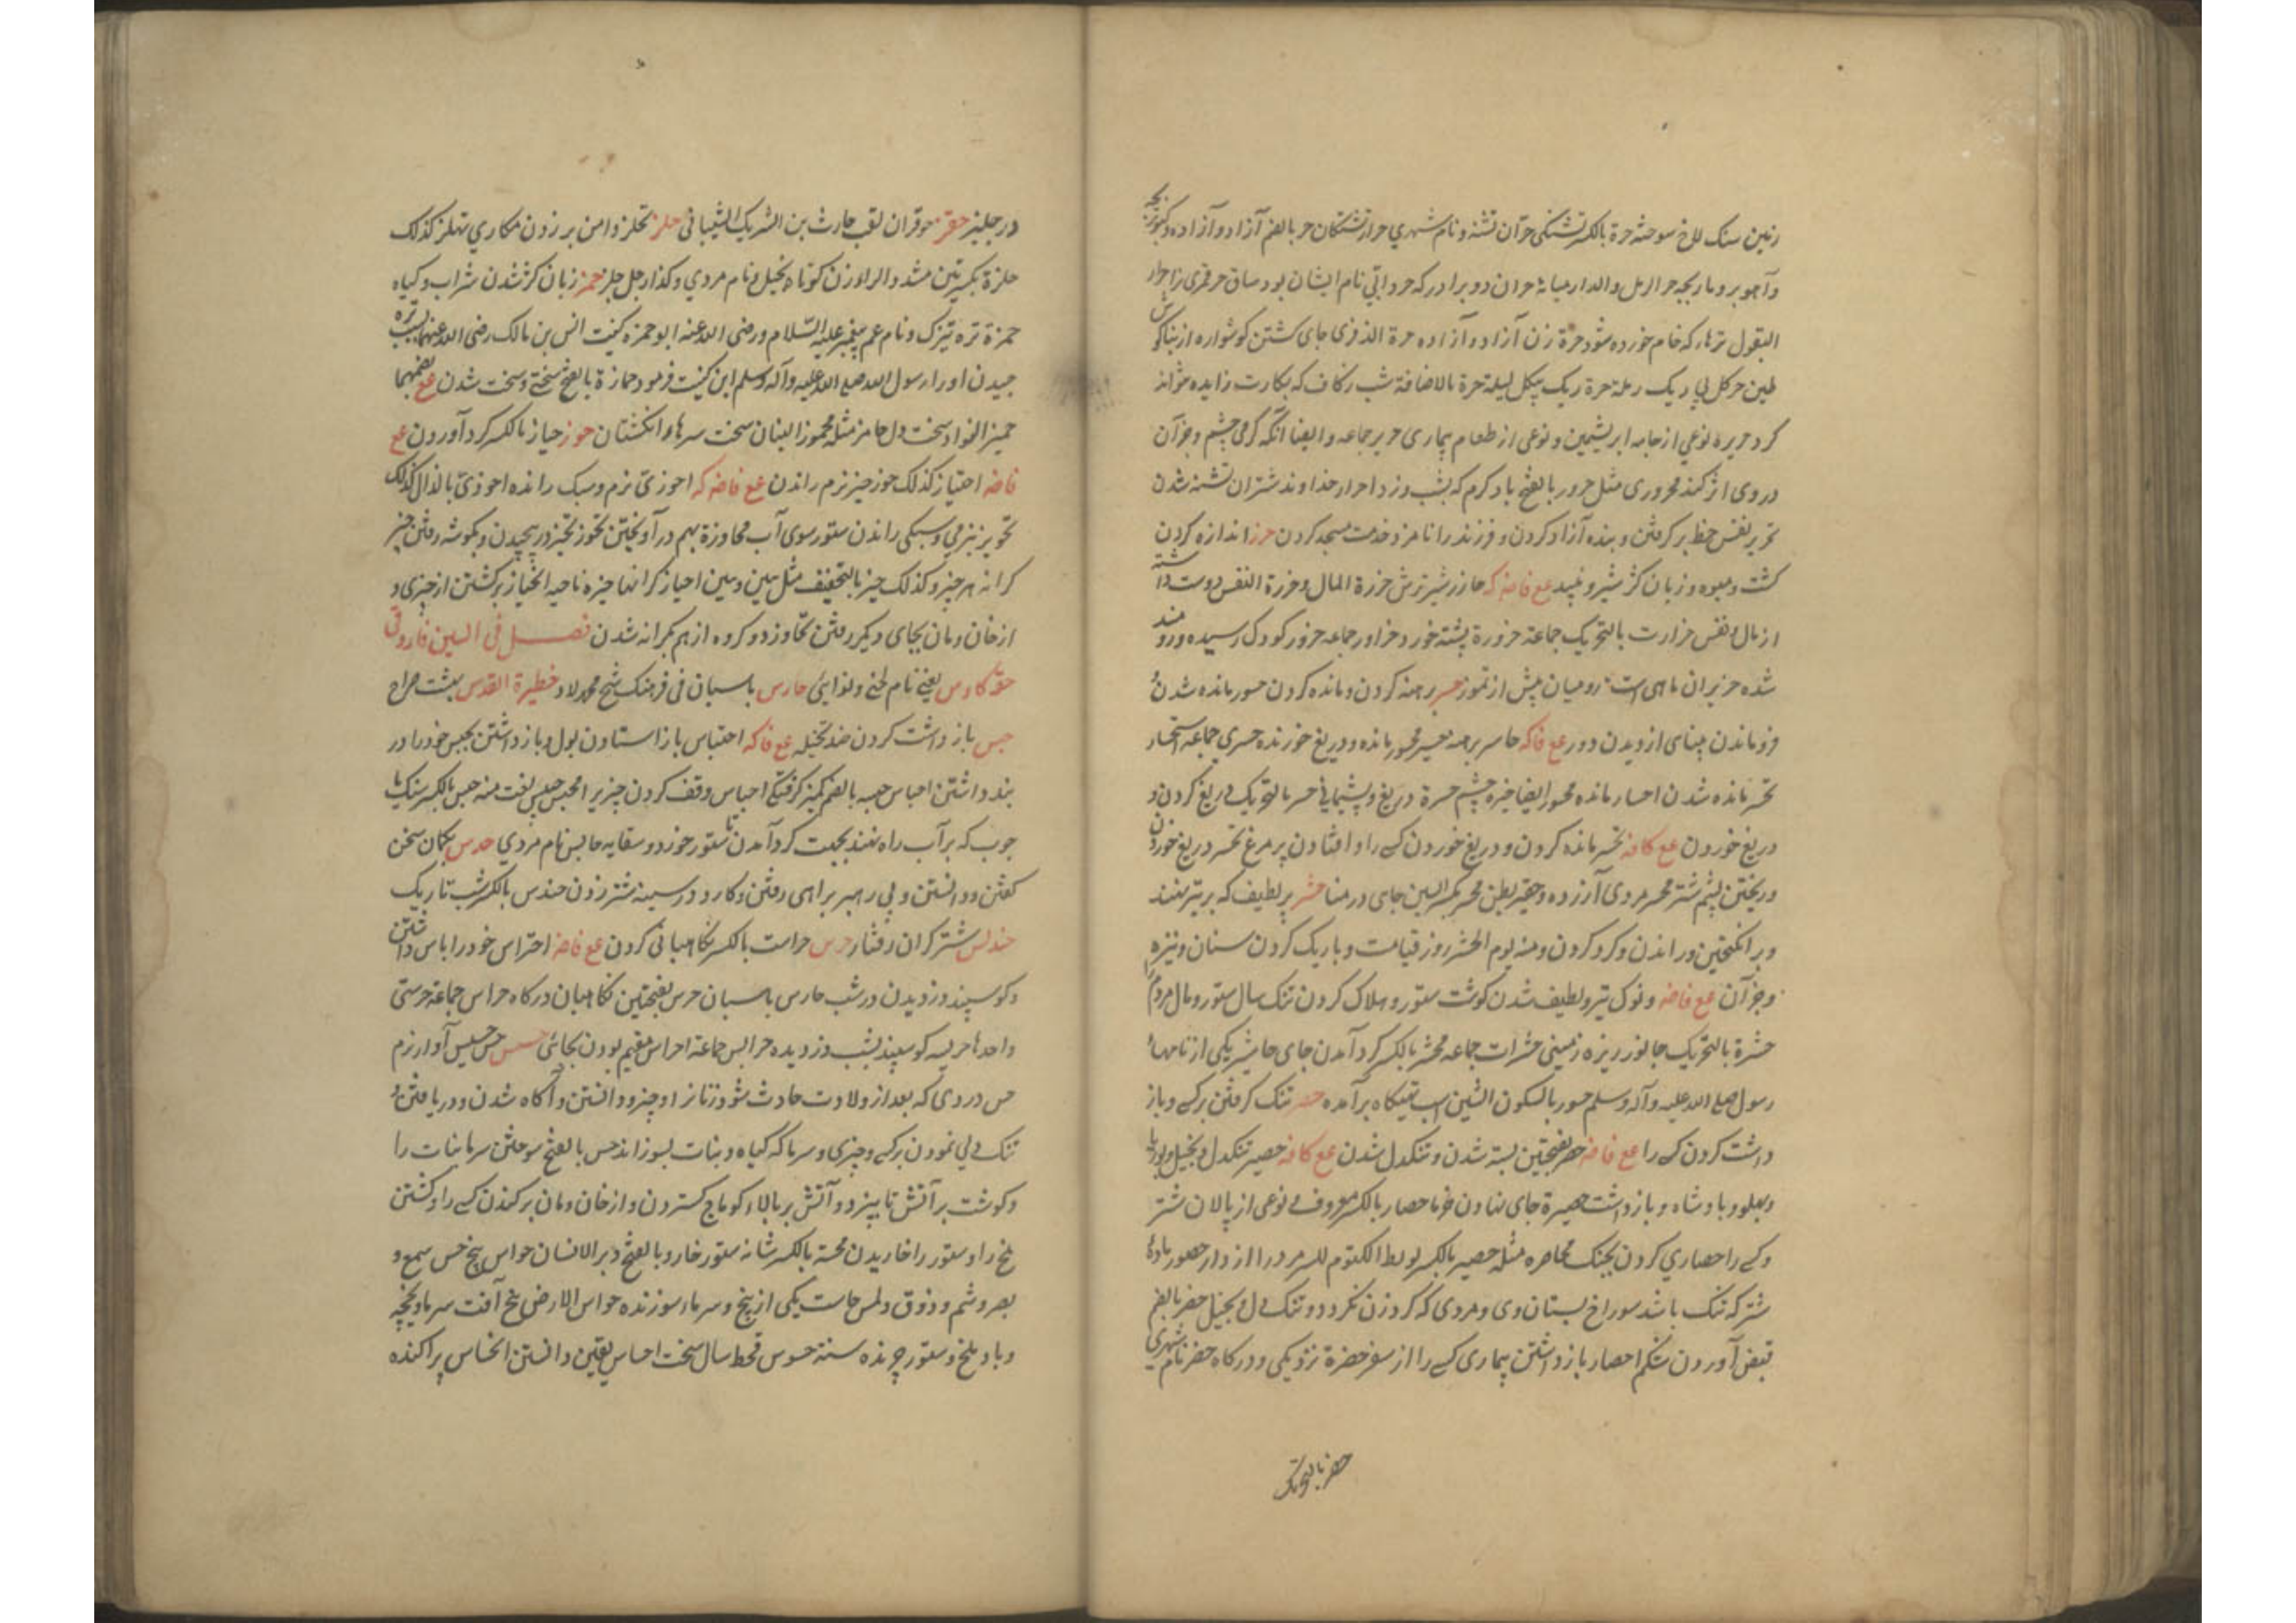 زمین سنک لاخ سوخته حرة بالکسر تشنکی حران تشنه و نام شهری حرار تشنکان حر بالضم آزاد و آزاده و کبوتر بچه
و آهو بره و مار بچه حر الرمل والدار میانه حران دو برادر که حر و ابی نام ایشان بود ساق حر قمری را احرار
البقول ترها که خام خورده شود حرة زن آزاد و آزاده حرة الذفری جای کشتن کوشواره از بناکوش
طین حر کل بی ریک رملة حرة ریک بیکل لیلة حرة بالاضافة شب زفاف که بکارت زایده نتواند
کرد حریره نوعی از جامه ابریشمین و نوعی از طعام بیماری حریر جماعه و ایضا آنکه کرمی خشم و جز آن
در وی اثر کند محروری مثل حرور بالفتح باد کرم که بشب وزد احرار خداوند شتران تشنه شدن
تحریر نفس خط بر کرفتن و بنده آزاد کردن و فرزند را نامزد خدمت مسجد کردن حزر اندازه کردن
کشت و میوه و زبان کز شیر و نبید مع فاضه که حازر شیر ترش حزرة المال و حزرة النفس دوست داشته
از مال و نفس حزارت بالتحریک جماعة حزورة پشته خورد حزاور جماعه حزور کودک رسیده و زورمند
شده حزیران ماهی است رومیان پیش از تموز حسر برهنه کردن و مانده کردن حسور مانده شدن
و فروماندن بینای از دیدن دور مع فاکه حاسر برهنه حسیر محسور مانده و دریغ خورنده حسری جماعه استحسار
تحسر مانده شدن احسار مانده محسور ایضا خیره چشم حسرة دریغ و پشیمانی حسر بالتحریک دریغ کردن و
دریغ خوردن مع کافه تحسیر مانده کردن و دریغ خوردن کسی را و افتادن پر مرغ تحسر دریغ خوردن
و ریختن پشم شتر محسر مردی آزرده و حقیر بطن محسر بکسر السین جای در منا حشر پر لطیف که بر تیر نهند
و برانکیختن و راندن و کرد کردن و منه یوم الحشر روز قیامت و باریک کردن سنان و نیزه
و جز آن مع فاضه و نوک تیر و لطیف شدن کوشت ستور و هلاک کردن تنک سال ستور و مال مردم را
حشرة بالتحریک جانور ریزه زمینی حشرات جماعه محشر بالکسر کرد آمدن جای حاشر یکی از نامهای
رسول صلی الله علیه و آله و سلم حشور بالسکون الشین اسب تهیکاه برآمده حصر تنک کرفتن بر کسی و باز
داشت کردن کسی را مع فاضه حصر بفتحتین بسته شدن و تنکدل شدن مع کافه حصیر تنکدل و بخیل و بوریا
و پهلو و بادشاه و بازداشت حصیرة جای نهادن خرما حصار بالکسر معروف و نوعی از پالان شتر
و کسی را حصاری کردن بجنک محاصره مثله حصیر بالکسر لو بط الکتوم للسر مرد را از دار حصور ماده
شتر که تنک باشد سوراخ پستان وی و مردی که کرد زن نکردد و تنک دل و بخیل حصر بالضم
قبض آوردن شکم احصار بازداشتن بیماری کسی را از سفر حضرة نزدیکی و درکاه حضر نام شهری
حضر بالتحریک
در جلیز حقز حوفزان لقب حارث بن الشریک الشیبانی حلز تحلز دامن بر زدن مکاری تهلز کذلک
حلزة بکسرتین مشدد الزاء زن کوتاه و بخیل و نام مردی و کذا رجل حلز حمز زبان کز شدن شراب و کیاه
حمزة تره تیزک و نام عم پیغمبر علیه السلام و رضی الله عنه ابو حمزه کنیت انس بن مالک رضی الله عنهما بسبب تره
چیدن او را رسول الله صلی الله علیه و آله و سلم این کنیت فرمود حمازة بالفتح سختی و سخت شدن مع بضمهما
حمیز الفواد سخت دل حامز مثله محموز البنان سخت سرهای انکشتان حوز حیاز بالکسر کرد آوردن مع
فاضه احتیاز کذلک حوز حیز نرم راندن مع فاضه که احوزی نرم و سبک راننده احوذی بالذال کذلک
تحویز بنرمی و سبکی راندن ستور سوی آب محاوزة بهم در آویختن تحوز تحیز در پیچیدن و بکوشه رفتن حیز
کرانه هر چیز و کذلک حیز بالتخفیف مثل هین و هین احیاز کرانها حیزه ناحیه انحیاز برکشتن از چیزی و
از خان و مان بجای دیکر رفتن تحاوز دو کروه از هم بکرانه شدن فصل فی السین فاروقی
حق کاوس یعنی نام لحنی و نوایی حارس باسبان فی فرهنک شیخ محمد لاد حظیرة القدس بهشت صراح
حبس باز داشت کردن ضد تخلیه مع فاکه احتباس باز استادن بول و باز داشتن بحبس خود را در
بند داشتن احباس حبسه بالضم کمیز کرفتکی احباس وقف کردن چیزی را المحبس حبیس نعت منه حبس بالکسر سنک یا
چوب که بر آب راه نهند بجهت کرد آمدن تا ستور خورد و سقایه حابس نام مردی حدس بکمان سخن
کفتن و دانستن و بی رهبر براهی رفتن و کارد در سینه شتر زدن حندس بالکسر شب تاریک
حندلس شتر کران رفتار حرس حراست بالکسر نکاهبانی کردن مع فاضه احتراس خود را باس داشتن
و کوسپند دزدیدن در شب حارس باسبان حرس بفتحتین نکاهبان درکاه حراس جماعة حرستی
واحدها حریسه کوسپند بشب دزدیده حرایس جماعة احراس مقیم بودن بجائی حسس حس حسیس آواز نرم
حس دردی که بعد از ولادت حادث شود زنانرا و چیزو دانستن و آکاه شدن و دریافتن
تنک دلی نمودن بر کسی و چیزی و سرما که کیاه و نبات بسوزاند حس بالفتح سوختن سرما نبات را
و کوشت بر آتش تا بپزد و آتش بر بالاء کوماج کستردن و از خان و مان برکندن کسی را و کشتن
ملخ را و ستور را خاریدن محسة بالکسر شانه ستور خار و بالفتح دبر الانسان حواس پنج حس سمع و
بصر و شم و ذوق و لمس حاست یکی از پنج و سرماء سوزنده حواس الارض پنج آفت سرما و یخچه
و باد و ملخ و ستور چرنده سنة حسوس قحط سال سخت احساس یقین دانستن انحساس پراکنده